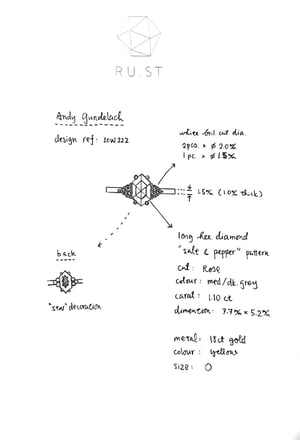 RU.ST
Andy Gundelach
design ref: 20W222
white bril cut dia.
2pcs. × ø 2.0%
1 pc. × ø 1.5%
1.5% (1.0% thick)
long hex. diamond
"salt & pepper" pattern
cut: Rose
colour: med/dk. grey
carat: 1.10 ct
dimention: 7.7% × 5.2%
back
"star" decoration
metal: 18ct gold
colour: yellow
size: O